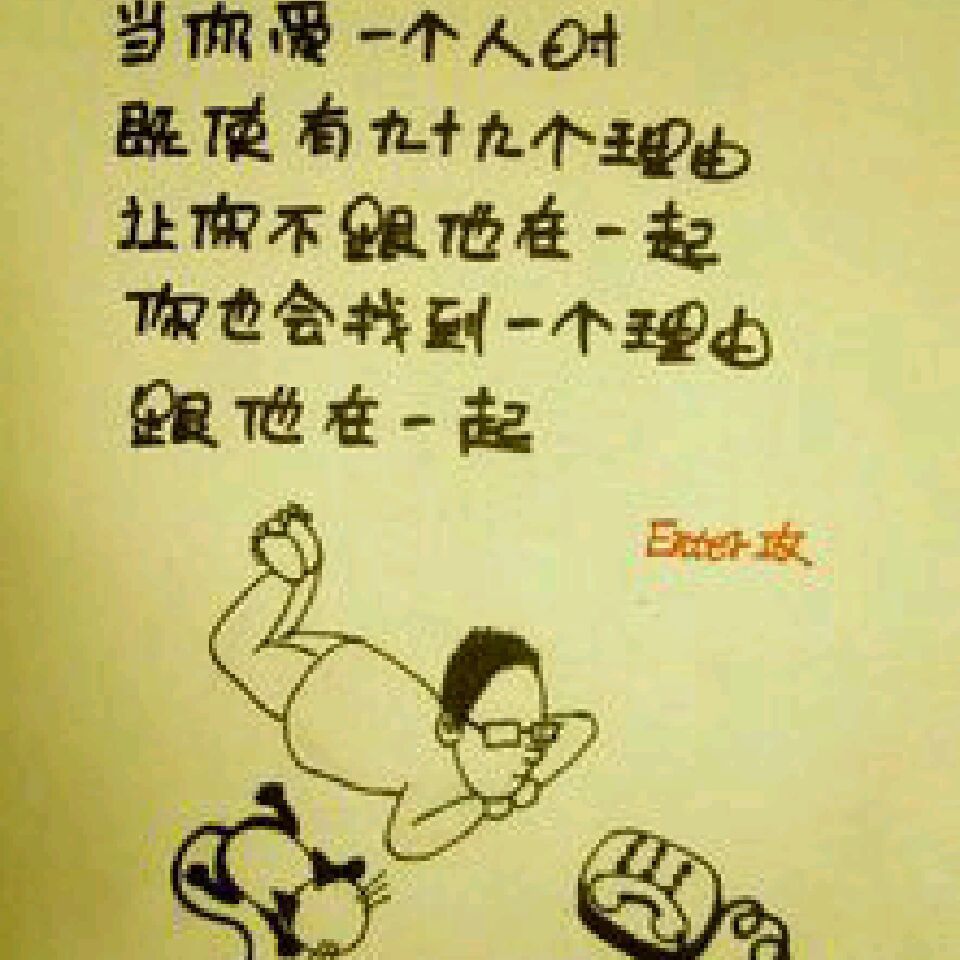 当你爱一个人时
既使有九十九个理由
让你不跟他在一起
你也会找到一个理由
跟他在一起